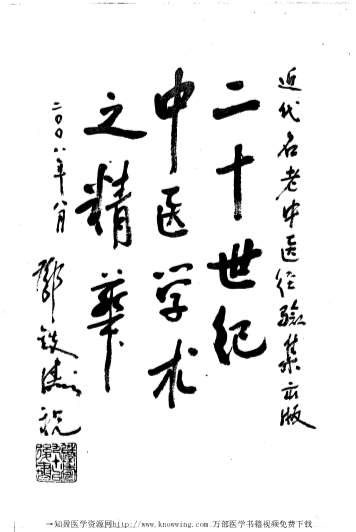 近代名老中医经验集出版
二十世纪
中医学术
之精华
二〇〇八年八月
邓铁涛祝
一知医学资源网http://www.knowing.com 万部医学书籍视频免费下载